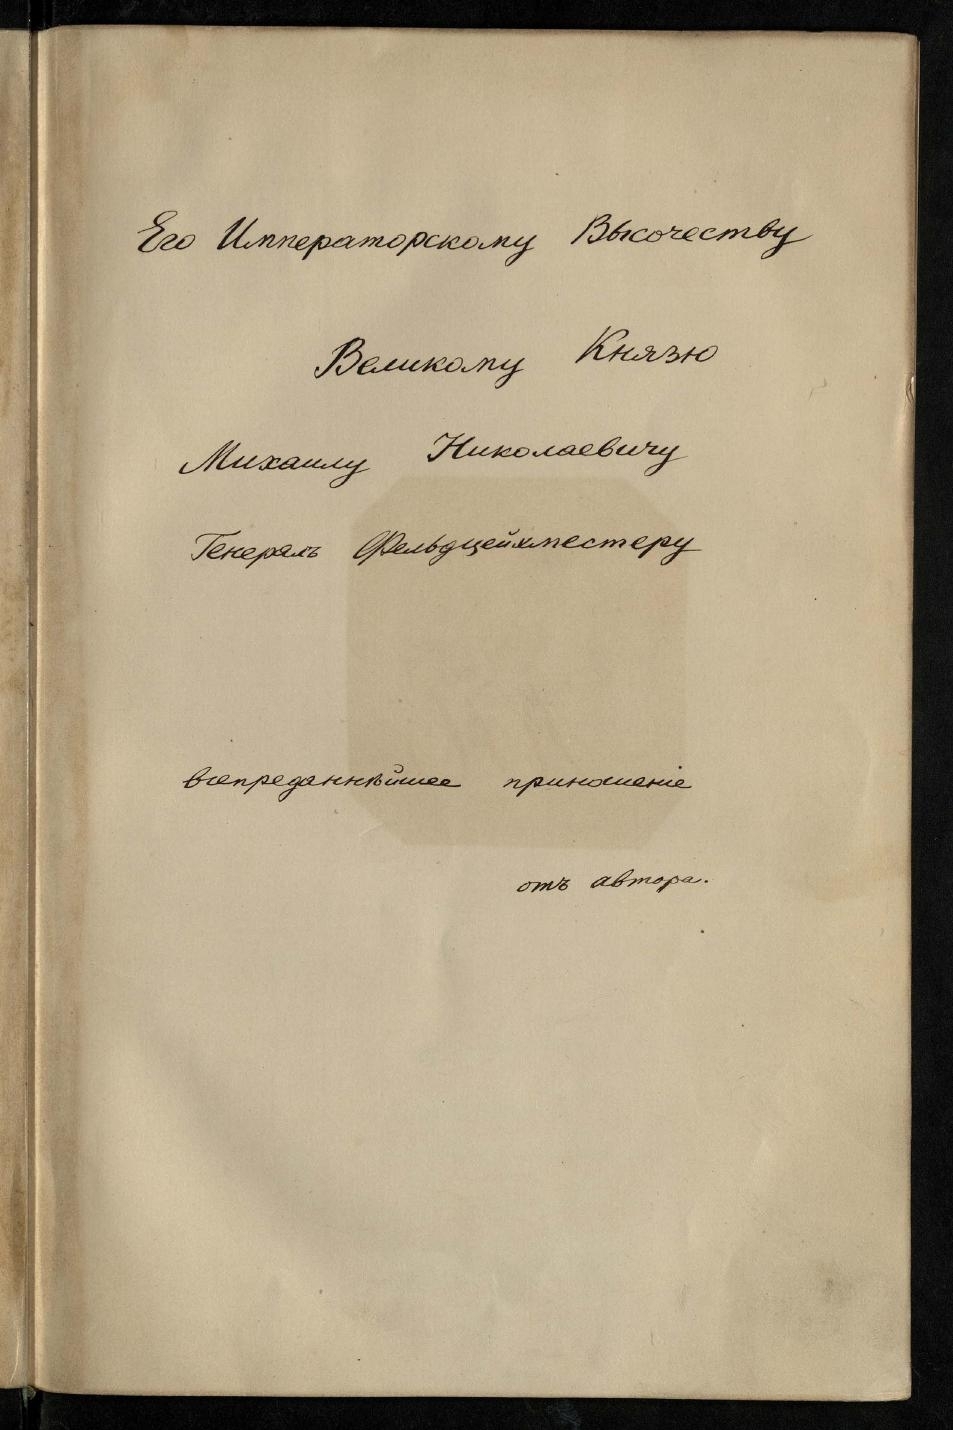 Его Императорскому Высочеству
Великому Князю
Михаилу Николаевичу
Генералъ Фельдцейхместеру
всепреданнѣйшее приношеніе
отъ автора.